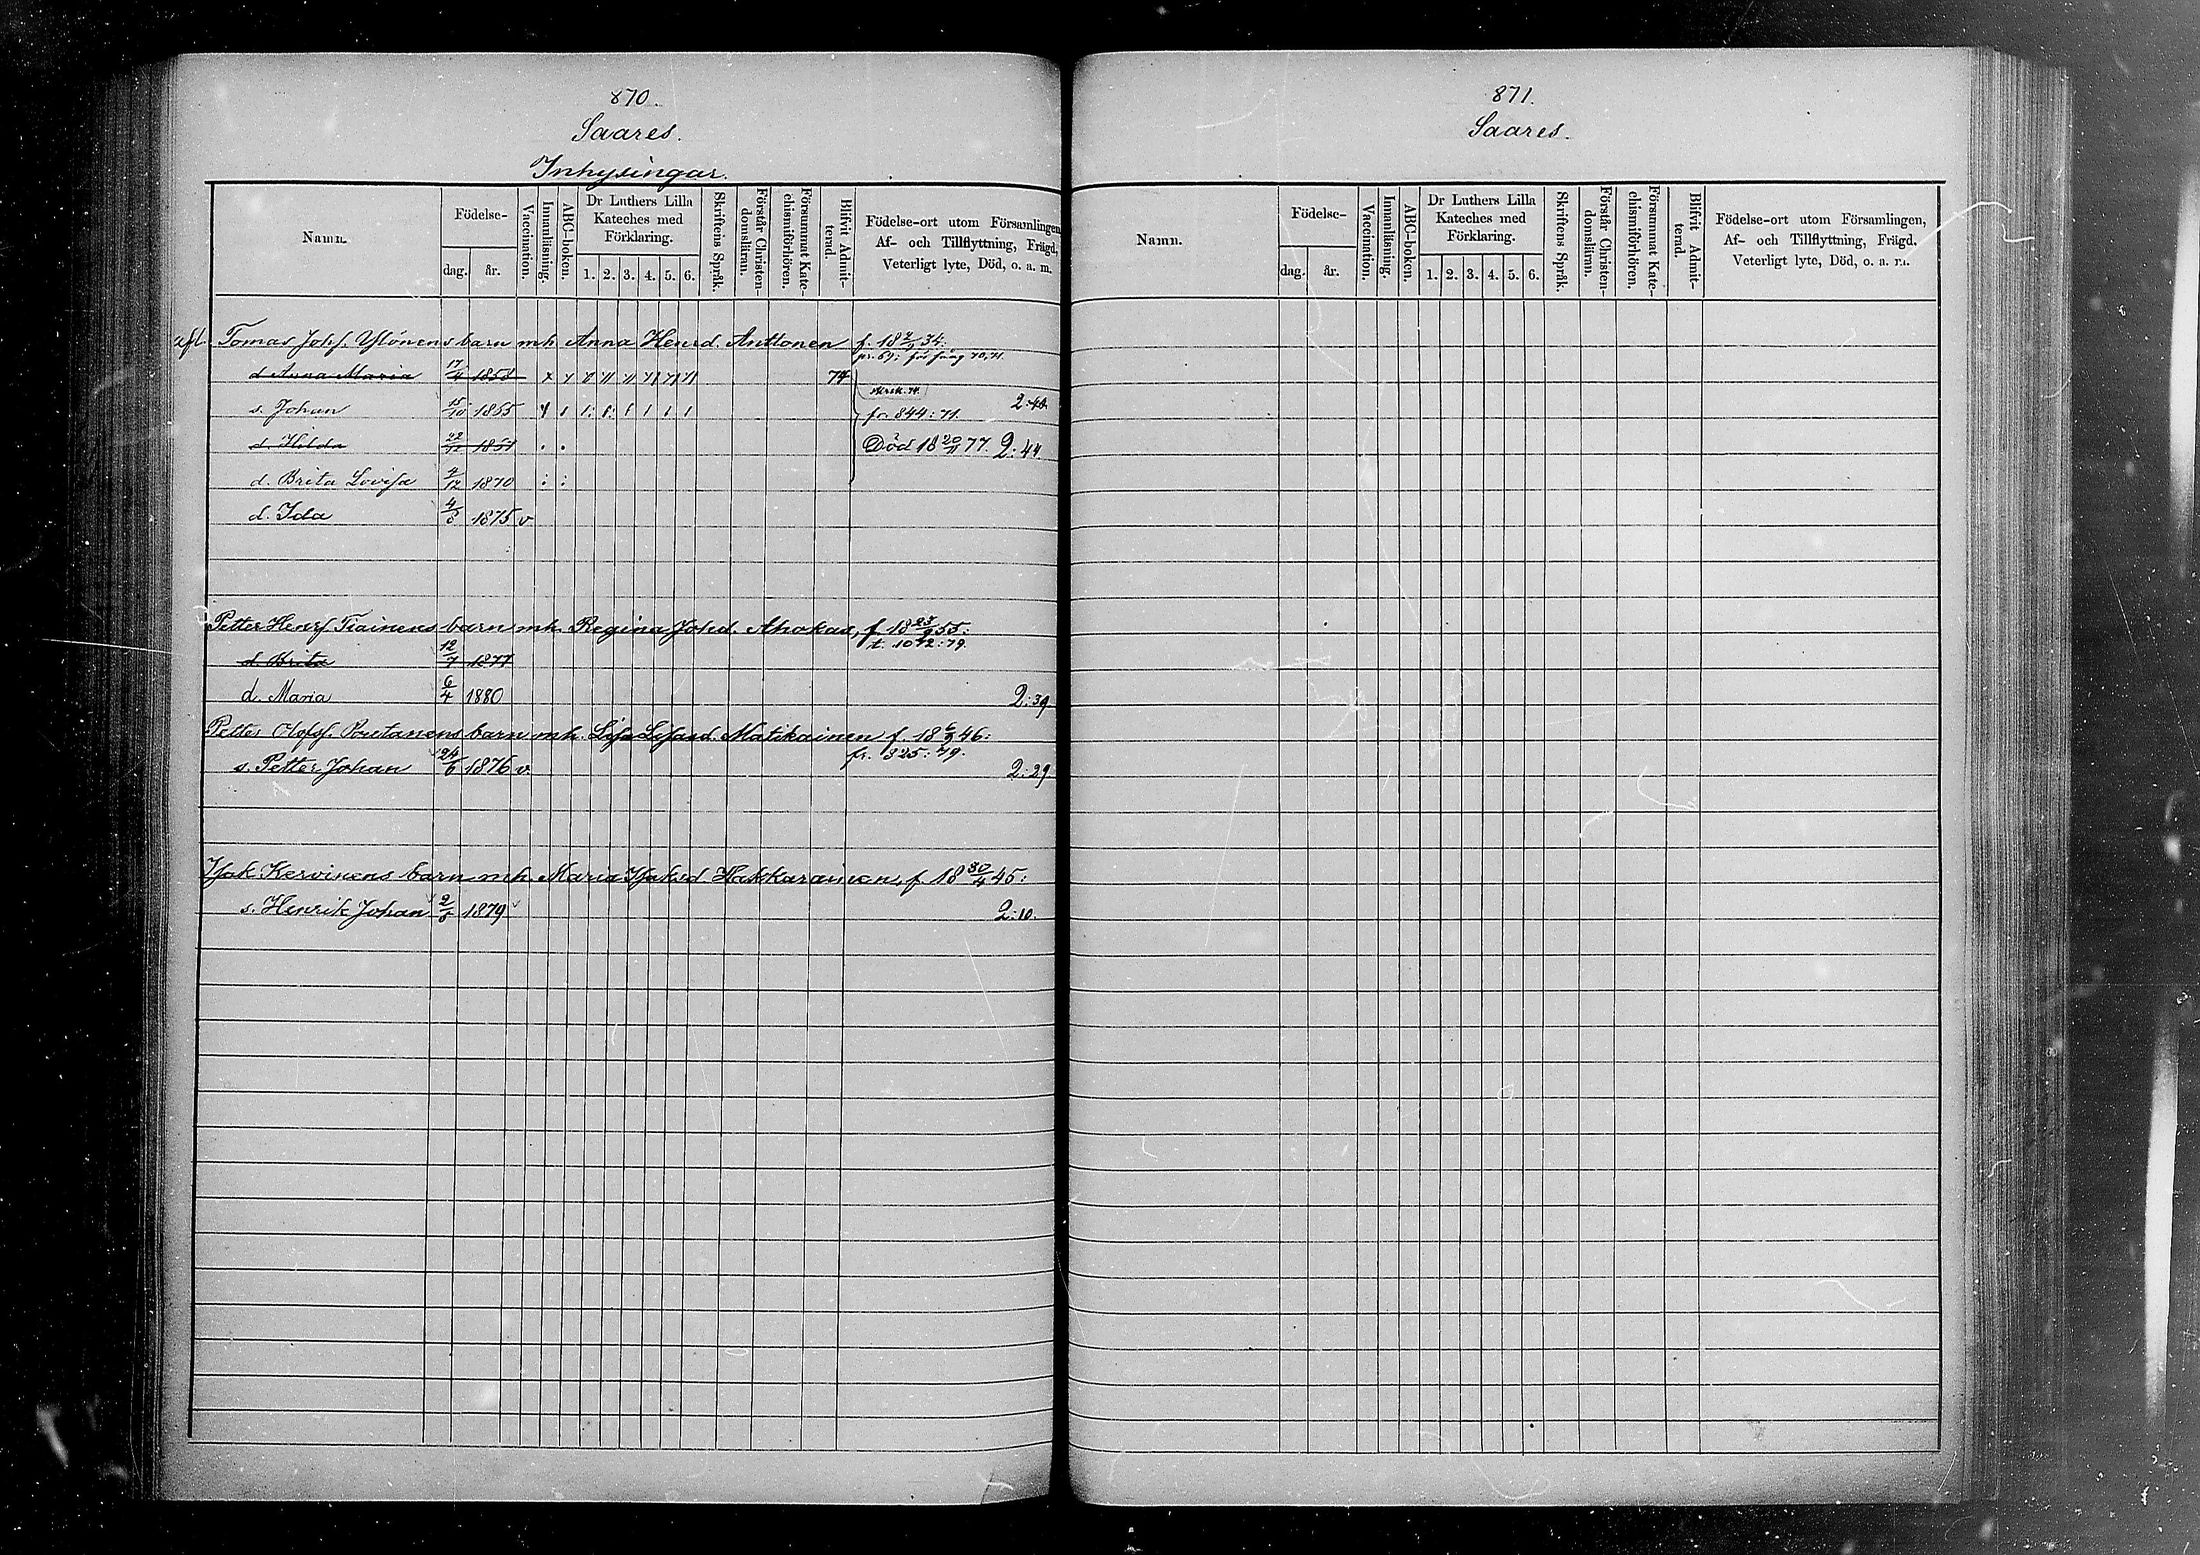 870.
Saares.
Inhysingar.
Namn. Födelse- dag. år. Vaccination. Innanläsning. ABC-boken. Dr Luthers Lilla Kateches med Förklaring. 1. 2. 3. 4. 5. 6. Skriftens Språk. Förstår Christendomsläran. Försummat Katechismiförhören. Blifvit Admitterad. Födelse-ort utom Församlingen, Af- och Tillflyttning, Frägd, Veterligt lyte, Död, o. a. m.
Tomas Johs. Ylönens barn mh Anna Henrsd. Anttonen f. 18 34.
d. Anna Maria 17/4 1858 74
s. Johan 15/10 1865 fr. 844:71. 2:40
d. Hilda Död 18 20/11 77. 2:44
d. Brita Lovisa 4/12 1870
d. Ida 4/8 1875 v
Petter Henrs. Tiainens barn mh. Regina Johsd. Ahokas, f. 18 55:
t. 1072:79.
d. Brita 12/7 1877
d. Maria 6/4 1880 2:39
Petter Olofs. Poutanens barn mh. Lisa Matikainen f. 18 6/9 46:
fr. 825:79.
s. Petter Johan 24/6 1876 v. 2:29
Isak Kervinens barn mh. Maria Isaksd Hakkarainen, f. 18 30/4 45:
s. Henrik Johan 2/8 1879 2:10.
871.
Saares.
Namn. Födelse- dag. år. Vaccination. Innanläsning. ABC-boken. Dr Luthers Lilla Kateches med Förklaring. 1. 2. 3. 4. 5. 6. Skriftens Språk. Förstår Christendomsläran. Försummat Katechismiförhören. Blifvit Admitterad. Födelse-ort utom Församlingen, Af- och Tillflyttning, Frägd, Veterligt lyte, Död, o. a. m.